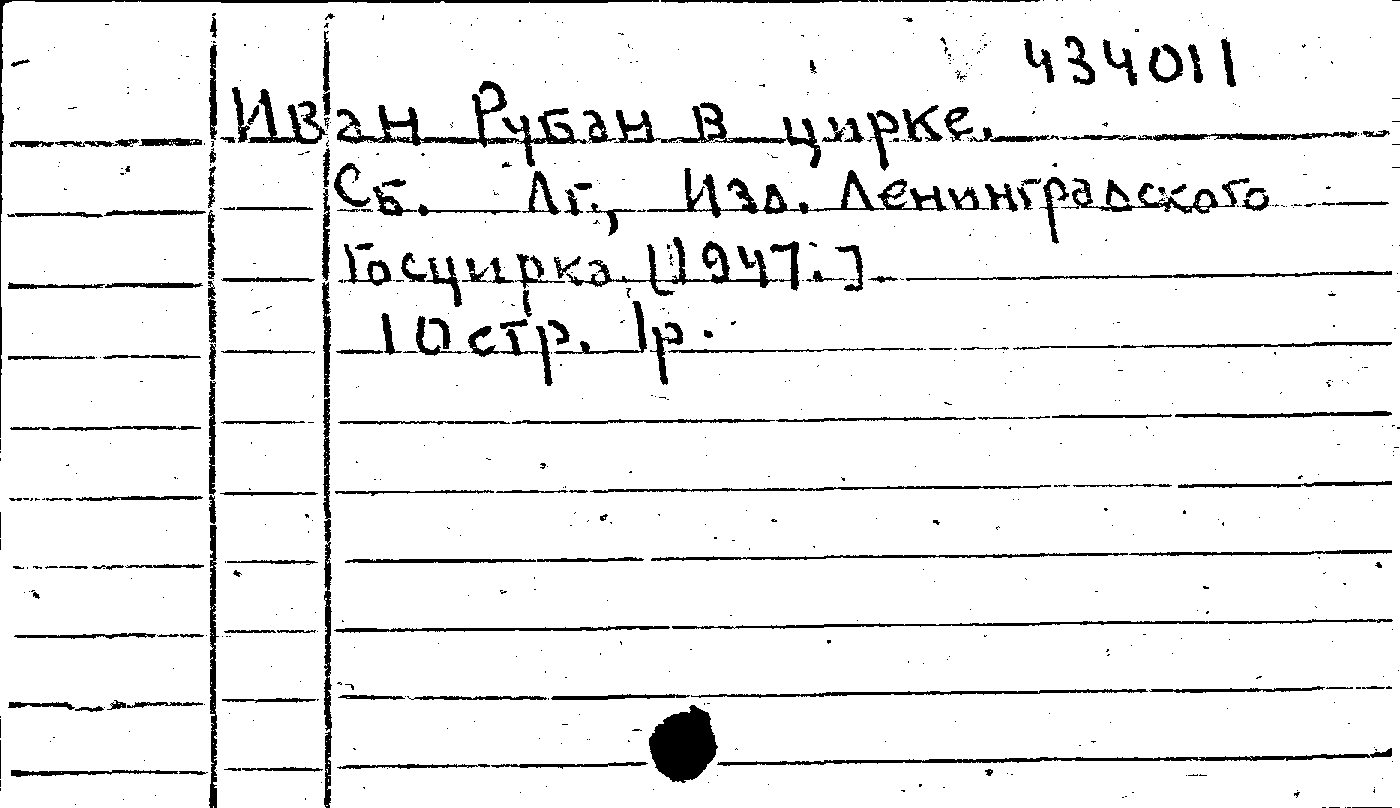 434011
Иван Рубан в цирке.
Сб. Лг., Изд. Ленинградского
Госцирка. [1947.].
10 стр. 1р.